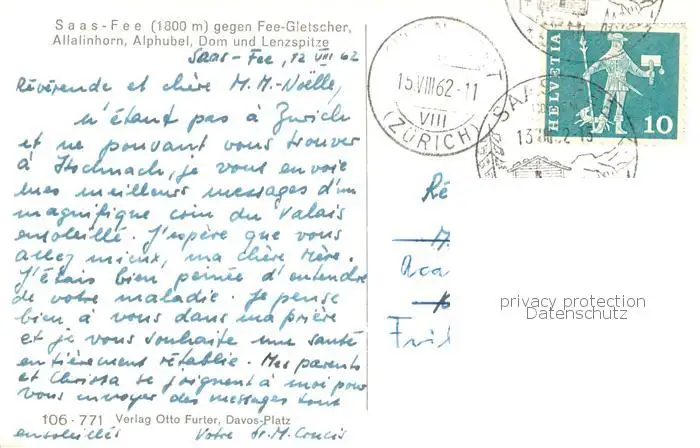 Saas-Fee (1800 m) gegen Fee-Gletscher,
Allalinhorn, Alphubel, Dom und Lenzspitze
Saas-Fee, 12 VIII 62
Révérende et chère M. M.-Noëlle,
N'étant pas à Zurich
et ne pouvant vous trouver
à, je vous envoie
mes meilleurs messages d'un
magnifique coin du Valais
ensoleillé. J'espère que vous
allez mieux, ma chère Mère.
J'étais bien peinée d'entendre
de votre maladie. Je pense
bien à vous dans ma prière
et je vous souhaite une santé
entièrement rétablie. Mes parents
et Christa se joignent à moi pour
vous envoyer des messages tout
ensoleillés Votre Sr. M. Crucis
106-771 Verlag Otto Furter, Davos-Platz
15.VIII.62-11
VIII
(ZÜRICH)
SAAS-FEE
HELVETIA
10
Ré
Aca
privacy protection
Datenschutz